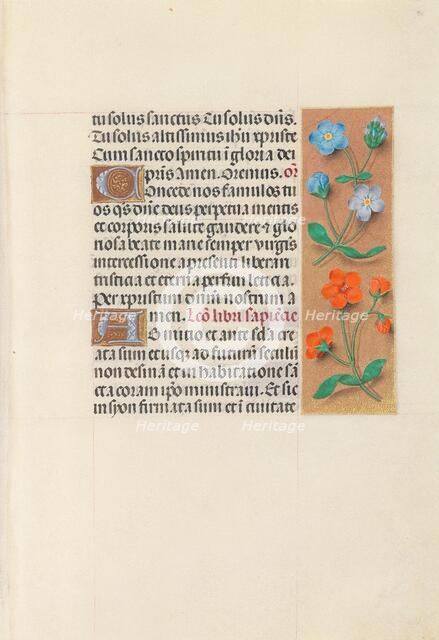 tu solus sanctus Tu solus dn̄s.
Tu solus altissimus ihū xp̄iste
Cum sancto spiritu ī gloria dei
pr̄is Amen. Oremus. Or̄
Oncede nos famulos tu
os q̄s dn̄e deus perpetua mentis
et corporis salute gaudere ⁊ glo
riosa beate marie semper virgīs
intercessione a presenti liberari
tristicia et eterna perfrui leticia.
Per xp̄istum dn̄m nostrum a
men. Lc̄o libri sapiēcie
Ab initio et ante sc̄la cre
ata sum et usq̄ ad futurū seculū
non desinā et in habitatione sā
cta coram ip̄o ministravi. Et sic
in syon firmata sum et ī civitate
Heritage
Heritage
Heritage
Heritage
Heritage
Heritage